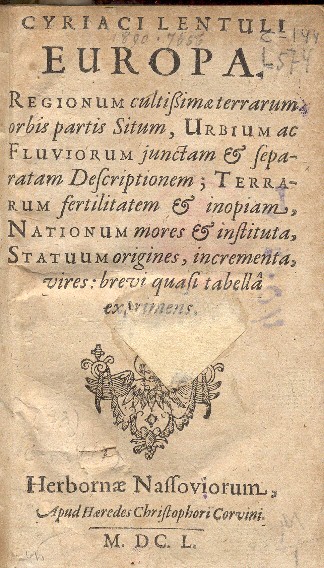 CYRIACI LENTULI
EUROPA.
REGIONUM cultißimæ terrarum
orbis partis Situm, URBIUM ac
FLUVIORUM junctam & ſepa-
ratam Deſcriptionem; TERRA-
RUM fertilitatem & inopiam,
NATIONUM mores & inſtituta,
STATUUM origines, incrementa,
vires: brevi quaſi tabellâ
exprimens.
Herbornæ Naſſoviorum,
Apud Hæredes Chriſtophori Corvini.
M. DC. L.